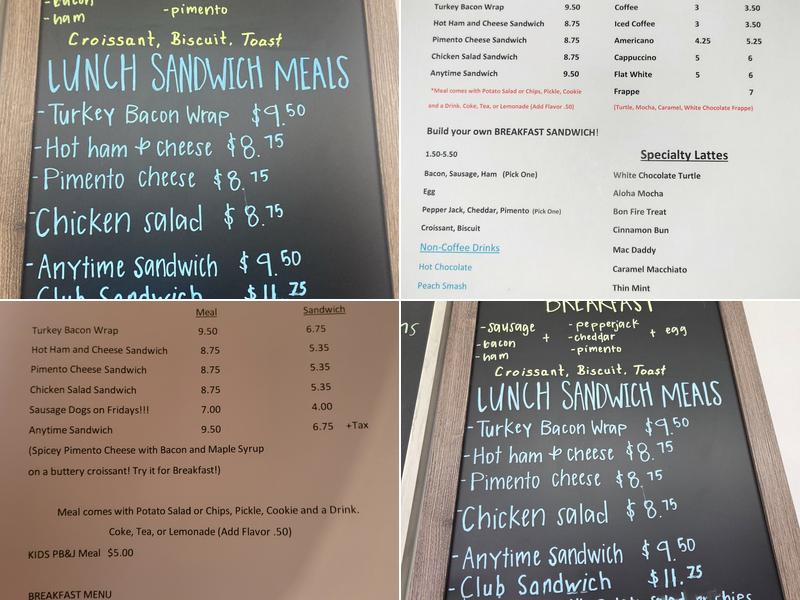 bacon
-ham
-pimento
Croissant, Biscuit, Toast
LUNCH SANDWICH MEALS
-Turkey Bacon Wrap $9.50
-Hot ham & cheese $8.75
-Pimento cheese $8.75
-Chicken salad $8.75
-Anytime Sandwich $9.50
Club Sandwich $11.75
Turkey Bacon Wrap 9.50
Hot Ham and Cheese Sandwich 8.75
Pimento Cheese Sandwich 8.75
Chicken Salad Sandwich 8.75
Anytime Sandwich 9.50
*Meal comes with Potato Salad or Chips, Pickle, Cookie
and a Drink. Coke, Tea, or Lemonade (Add Flavor .50)
Coffee 3 3.50
Iced Coffee 3 3.50
Americano 4.25 5.25
Cappuccino 5 6
Flat White 5 6
Frappe 7
(Turtle, Mocha, Caramel, White Chocolate Frappe)
Build your own BREAKFAST SANDWICH!
1.50-5.50
Bacon, Sausage, Ham (Pick One)
Egg
Pepper Jack, Cheddar, Pimento (Pick One)
Croissant, Biscuit
Non-Coffee Drinks
Hot Chocolate
Peach Smash
Specialty Lattes
White Chocolate Turtle
Aloha Mocha
Bon Fire Treat
Cinnamon Bun
Mac Daddy
Caramel Macchiato
Thin Mint
Meal Sandwich
Turkey Bacon Wrap 9.50 6.75
Hot Ham and Cheese Sandwich 8.75 5.35
Pimento Cheese Sandwich 8.75 5.35
Chicken Salad Sandwich 8.75 5.35
Sausage Dogs on Fridays!!! 7.00 4.00
Anytime Sandwich 9.50 6.75 +Tax
(Spicy Pimento Cheese with Bacon and Maple Syrup
on a buttery croissant! Try it for Breakfast!)
Meal comes with Potato Salad or Chips, Pickle, Cookie and a Drink.
Coke, Tea, or Lemonade (Add Flavor .50)
KIDS PB&J Meal $5.00
BREAKFAST MENU
75
BREAKFAST
-sausage
-bacon
-ham
+
-pepperjack
-cheddar
-pimento
+ egg
Croissant, Biscuit, Toast
LUNCH SANDWICH MEALS
-Turkey Bacon Wrap $9.50
-Hot ham & cheese $8.75
-Pimento cheese $8.75
-Chicken salad $8.75
-Anytime Sandwich $9.50
-Club Sandwich $11.75
salad or chips